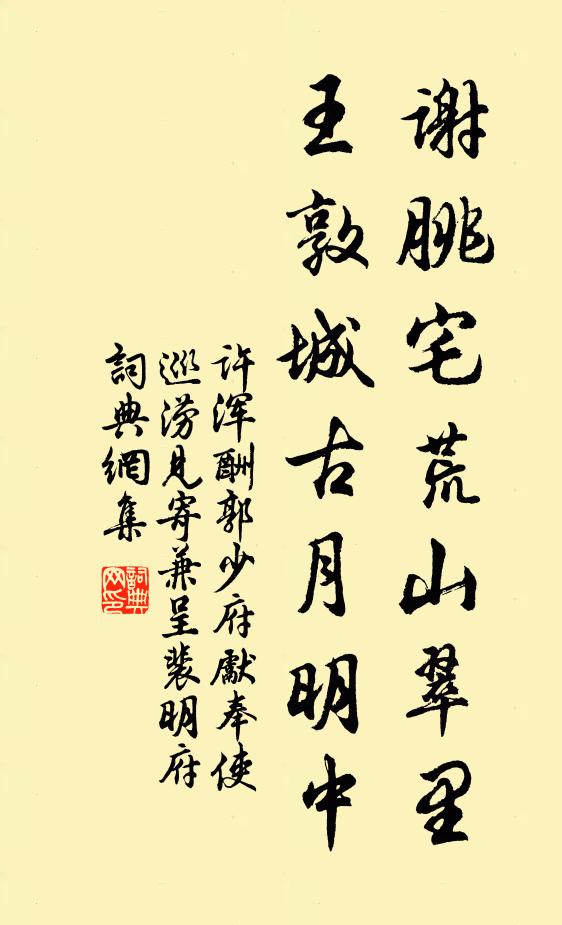 谢朓宅荒山翠里
王敦城古月明中
许浑酬郭少府獻奉使
巡涝见寄兼呈裴明府
詞典網集
詞典网印